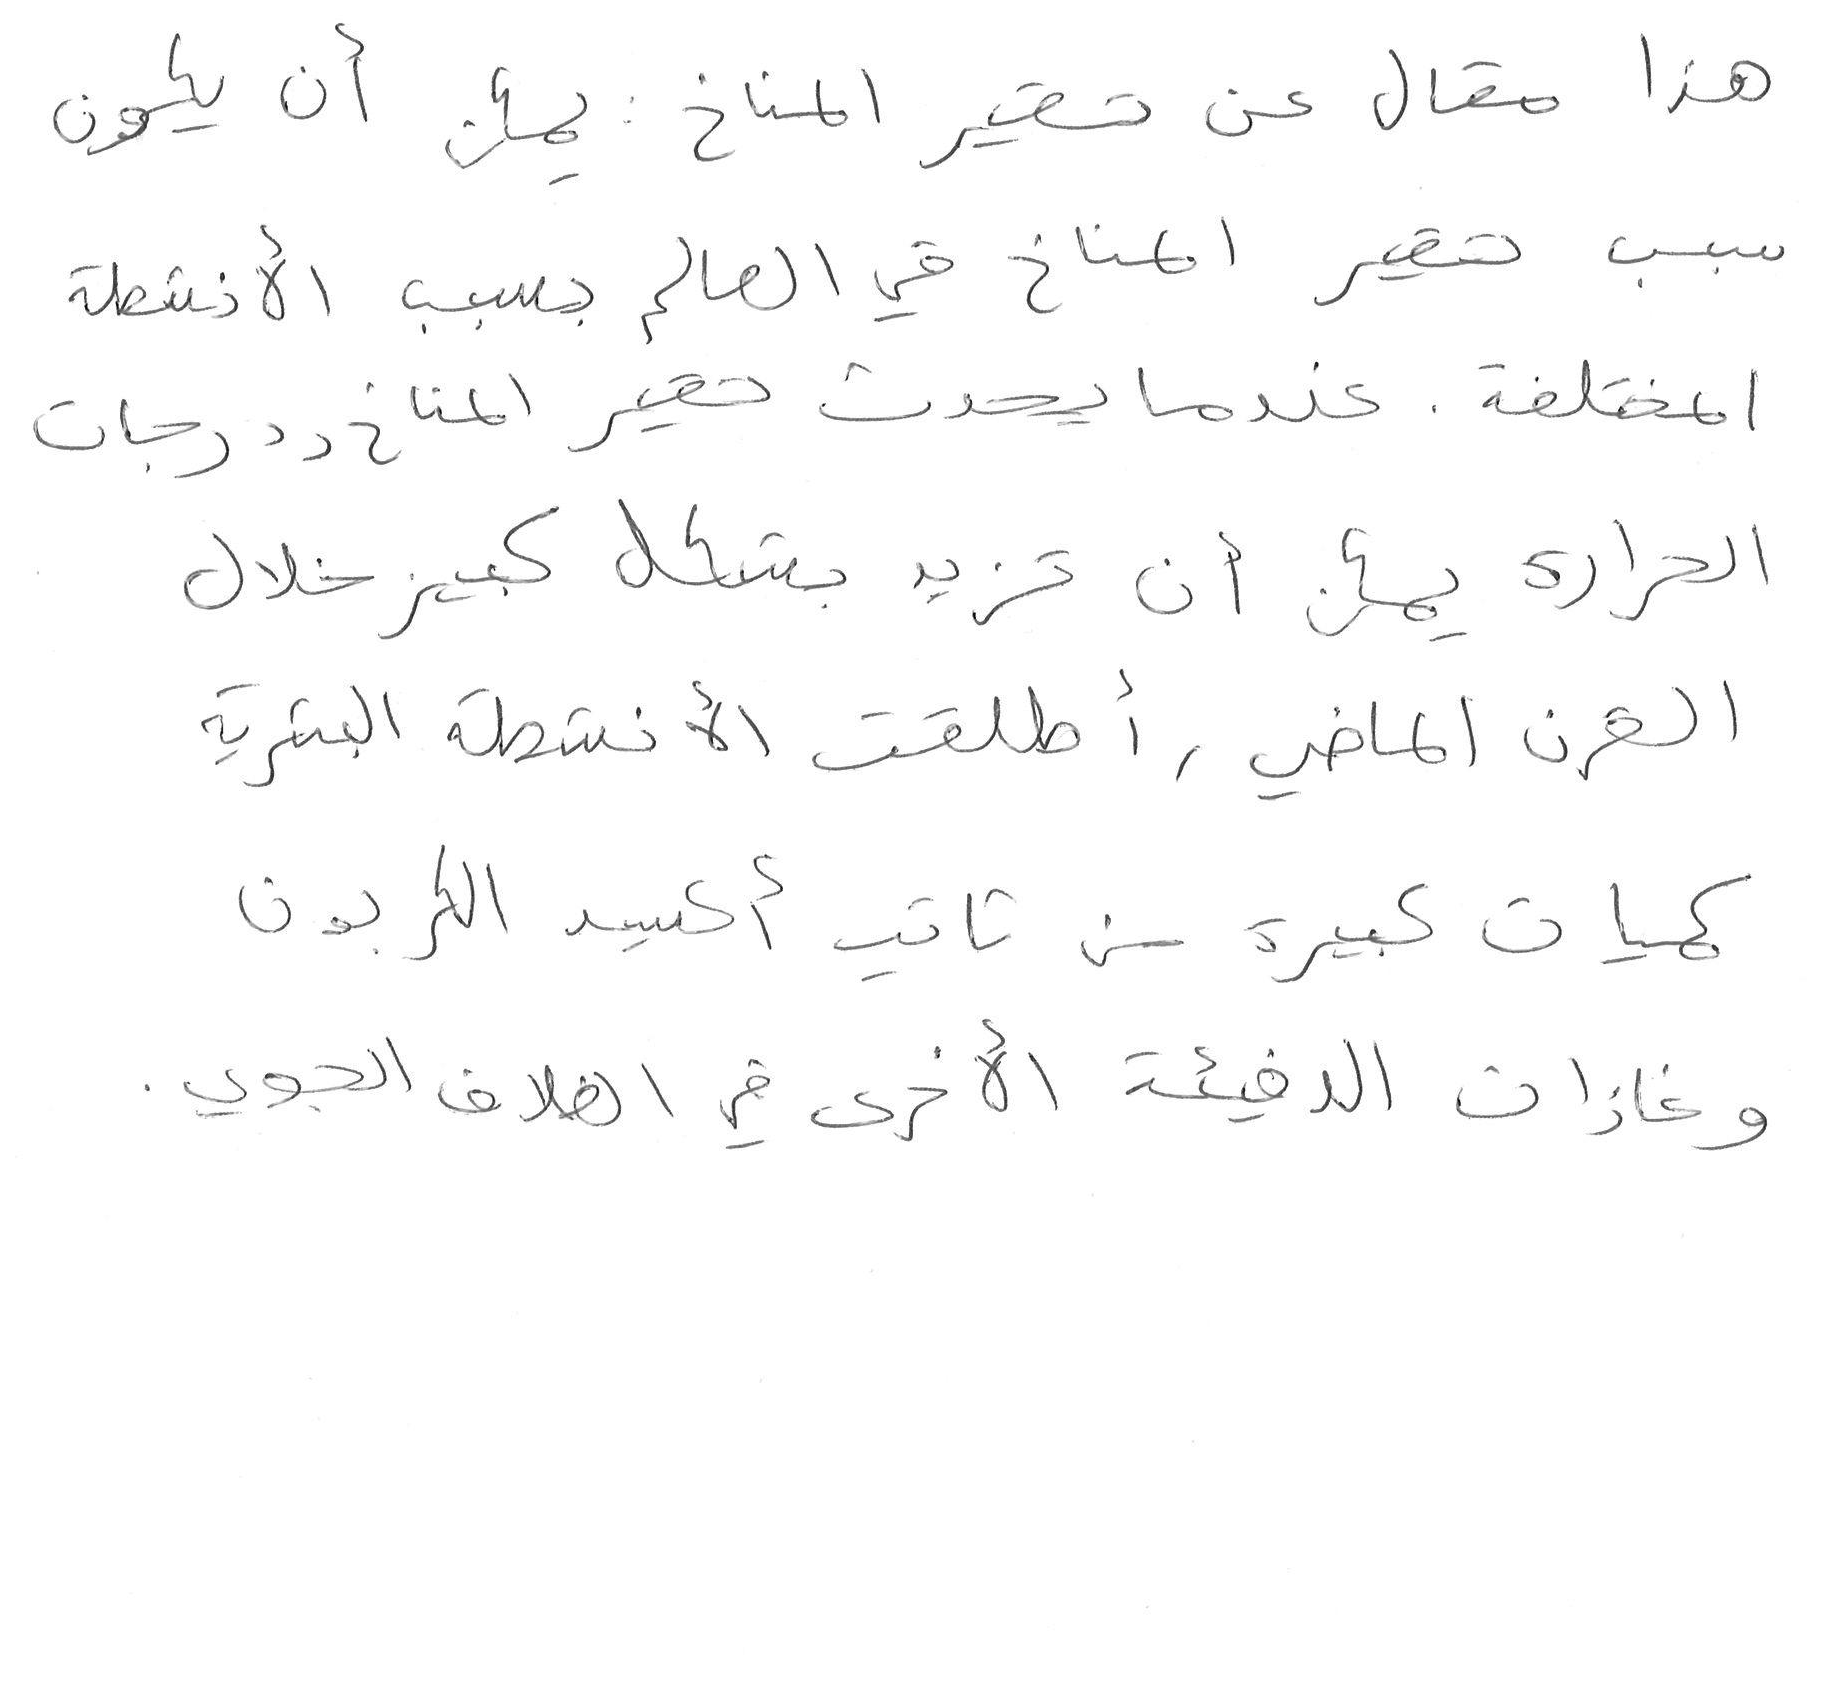 هذا مقال عن تغير المناخ : يمكن أن يكون
سبب تغير المناخ في العالم بسبب الأنشطة
المختلفة . عندما يحدث تغير المناخ ، درجات
الحراره يمكن أن تزيد بشكل كبير خلال
القرن الماضي , أطلقت الأنشطة البشرية
كميات كبيرة من ثاني أكسيد الكربون
وغازات الدفيئة الأخرى في الغلاف الجوي .